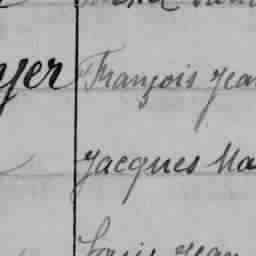 yer François Jea
Jacques Ma
Louis Jean